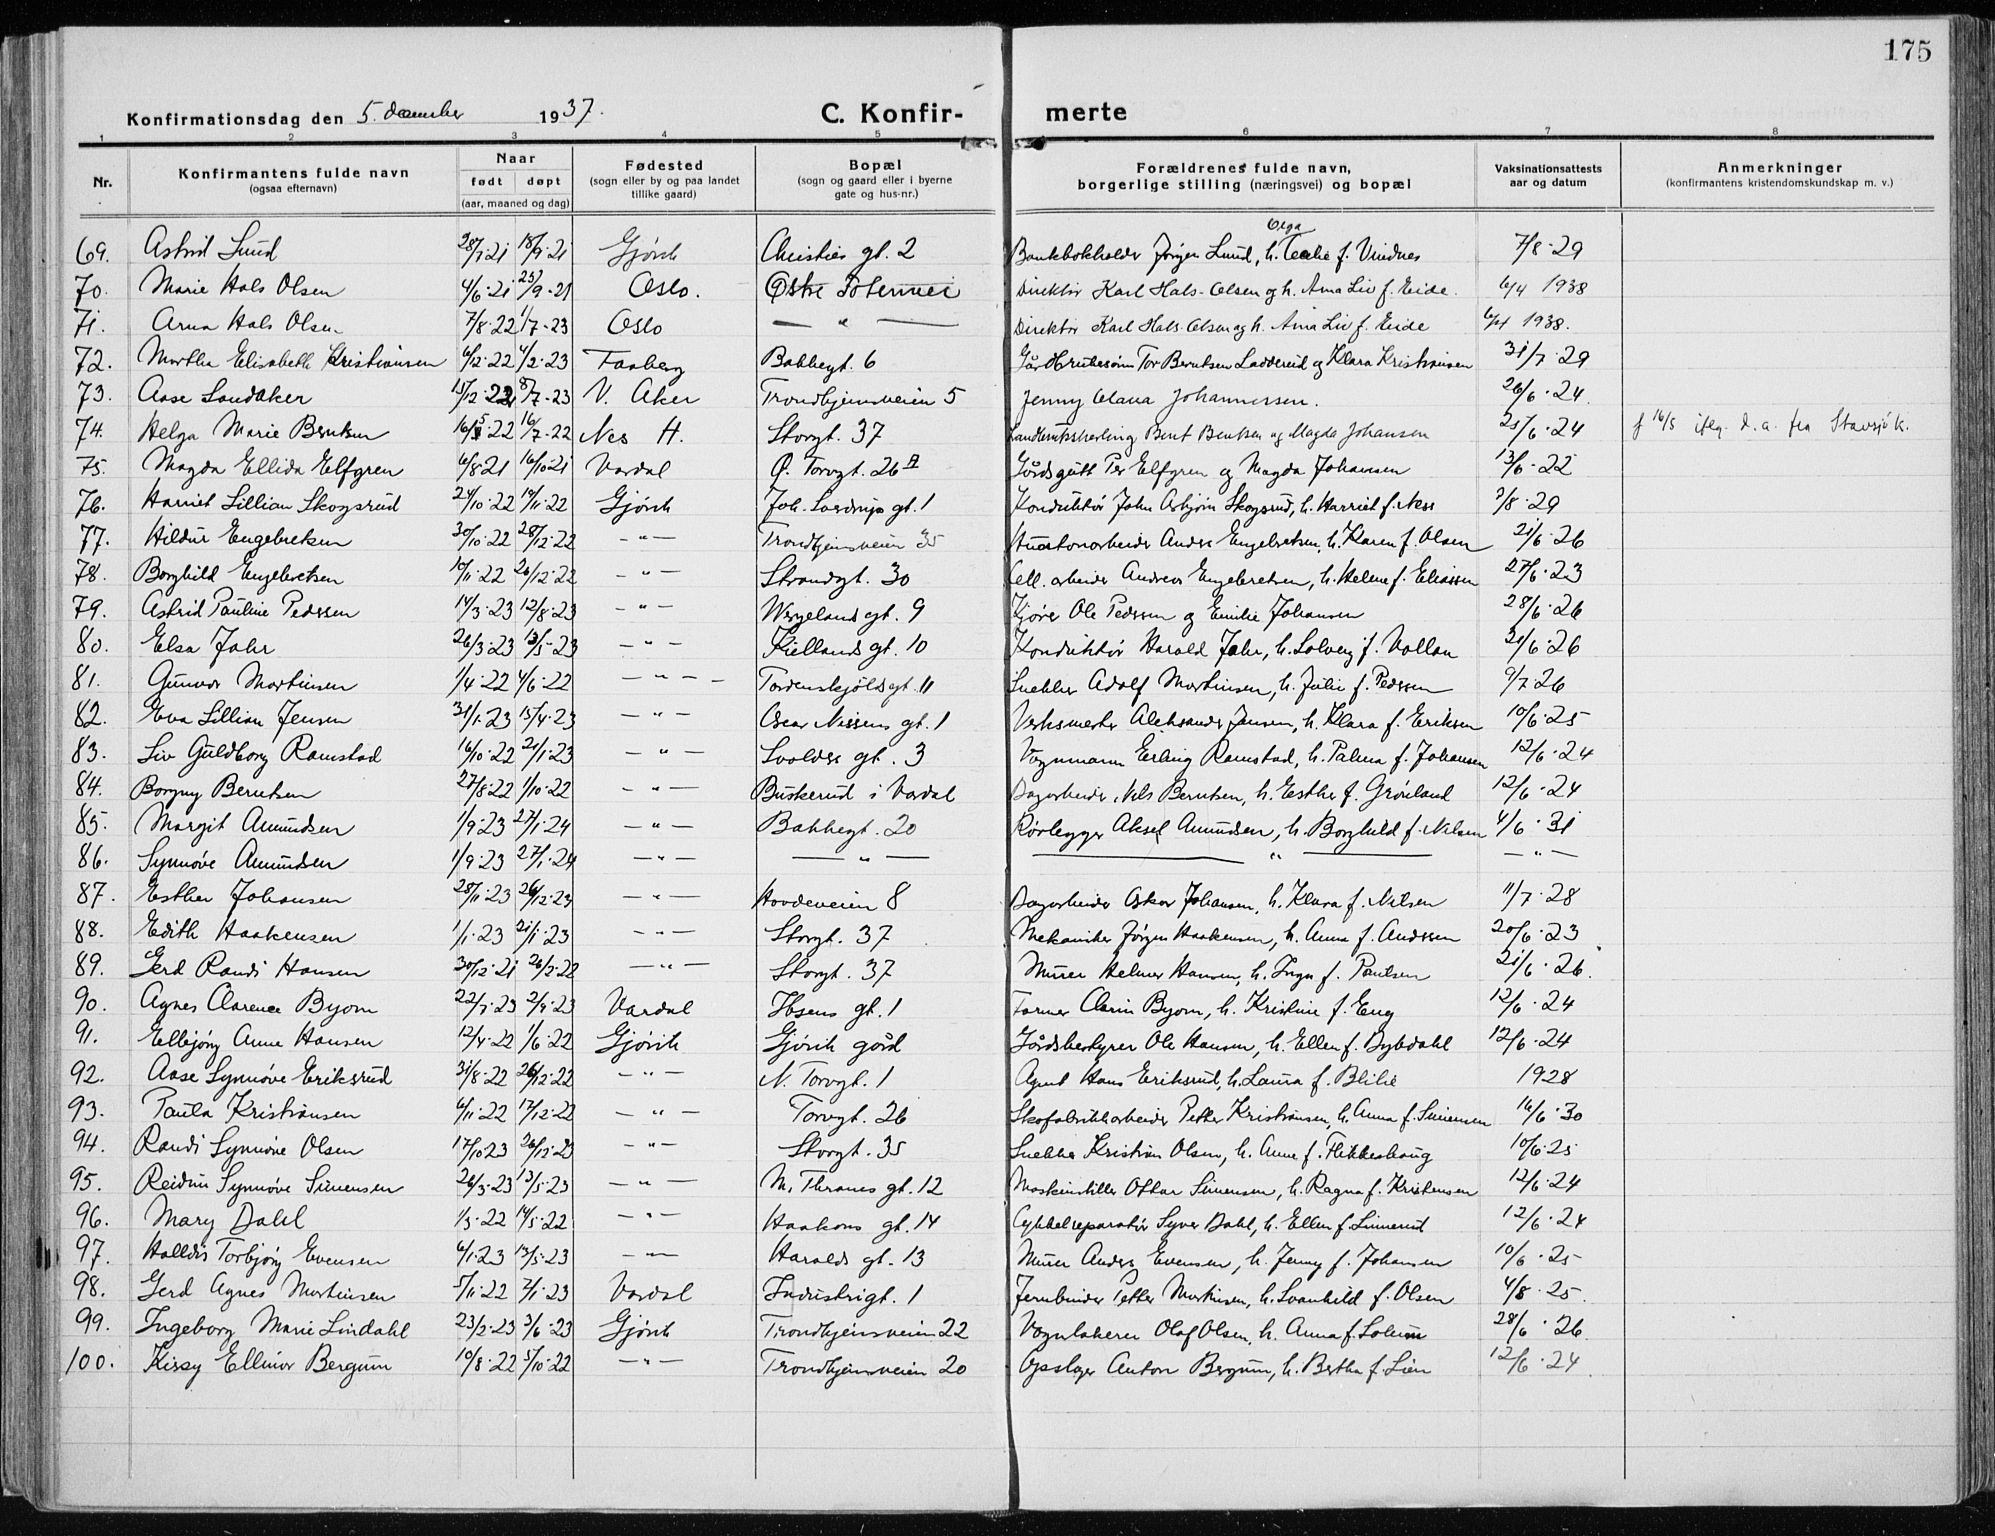 175
Konfirmationsdag den 5. december 1937.
C. Konfir- merte
1 2 3 4 5 6 7 8
Nr. Konfirmantens fulde navn (ogsaa efternavn) Naar født døpt (aar, maaned og dag) Fødested (sogn eller by og paa landet tillike gaard) Bopæl (sogn og gaard eller i byerne gate og hus-nr.) Forældrenes fulde navn, borgerlige stilling (næringsvei) og bopæl Vaksinationsattests aar og datum Anmerkninger (konfirmantens kristendomskundskap m. v.)
69. Astrid Lund 28/7·21 18/9·21 Gjøvik Christies gt. 2 Bankbokholder Jørgen Lund, h. Olga f. Vindnes 7/8·29
70. Marie Hals Olsen 4/6·21 25/9·21 Oslo. Østre Totenvei Direktør Karl Hals-Olsen og h. Ama Liv f. Eide. 6/4 1938
71. Arna Hals Olsen 7/8·22 1/7·23 Oslo — " — Direktør Karl Hals-Olsen og h. Ama Liv f. Eide 6/4 1938.
72. Martha Elisabeth Kristiansen 6/12·22 4/2·23 Faaberg Bakkegt. 6 Tor Berntsen Ladderud og Klara Kristiansen 31/7·29
73. Aase Sandaker 15/12·22 8/7·23 V. Aker Trondhjemsveien 5 Jenny Olava Johannessen. 26/6·24
74. Helga Marie Berntsen 16/5·22 16/7·22 Nes H. Storgt. 37 Bernt Berntsen og Magda Johansen 25/6·24 f 16/5 iflg. d. a. fra Stavsjøk.
75. Magda Ellida Elfgren 6/8·21 16/10·21 Vardal Ø. Torvgt. 26 A Gårdsgutt Per Elfgren og Magda Johansen 13/6·22
76. Harriet Lillian Skogsrud 24/10·22 19/11·22 Gjøvik Joh. Sverdrups gt. 1 Konduktør John Asbjørn Skogsrud, h. Harriet f. Ness 3/8·29
77. Hildur Engebretsen 30/10·22 28/12·22 — " — Trondhjemsveien 35 Anders Engebretsen, h. Karen f. Olsen 21/6·26
78. Borghild Engebretsen 10/11·22 26/12·22 — " — Strandgt. 30 Cell. arbeider Andreas Engebretsen, h. Helene f. Eliassen 27/6·23
79. Astrid Pauline Pedersen 14/3·23 12/8·23 — " — Wergelands gt. 9 Kjører Ole Pedersen og Emilie Johansen 28/6·26
80. Elsa Jahr 26/3·23 13/5·23 — " — Kiellands gt. 10 Konduktør Harald Jahr, h. Solveig f. Vollan 21/6·26
81. Gunvor Martinsen 1/4·22 4/6·22 — " — Tordenskjolds gt. 11 Snekker Adolf Martinsen, h. Julie f. Pedersen 9/7·26
82. Eva Lillian Jensen 31/1·23 15/4·23 — " — Oscar Nissens gt. 1 Verksmester Aleksander Jensen, h. Klara f. Eriksen 10/6·25
83. Liv Guldborg Ramstad 16/10·22 21/1·23 — " — Svolder gt. 3 Vognmann Erling Ramstad, h. Palma f. Johansen 12/6·24
84. Borgny Berntsen 27/8·22 1/10·22 — " — Buskerud i Vardal Dagarbeider Nils Berntsen, h. Esther f. Grønland 12/6·24
85. Margit Amundsen 1/9·23 27/1·24 — " — Bakkegt. 20 Rørlegger Aksel Amundsen, h. Borghild f. Nilsen 4/6·31
86. Synnøve Amundsen 1/9·23 27/1·24 — " — — " — — " — — " —
87. Esther Johansen 28/11·23 26/12·23 — " — Hovdeveien 8 Dagarbeider Oskar Johansen, h. Klara f. Nilsen 11/7·28
88. Edith Haakensen 1/1·23 21/1·23 — " — Storgt. 37 Mekaniker Jørgen Haakensen, h. Anna f. Anderssen 20/6·23
89. Gerd Randi Hansen 30/12·21 26/2·22 — " — Storgt. 37 Murer Helmer Hansen, h. Inga f. Paulsen 21/6·26
90. Agnes Clarence Byom 22/7·23 2/9·23 Vardal Ibsens gt. 1 Former Clarin Byom, h. Kristine f. Eng 12/6·24
91. Elbjørg Anne Hansen 12/4·22 1/6·22 Gjøvik Gjøvik gård Gårdsbestyrer Ole Hansen, h. Ellen f. Dybdahl 12/6·24
92. Aase Synnøve Eriksrud 31/8·22 26/12·22 — " — N. Torvgt. 1 Agent Hans Eriksrud, h. Laura f. Blilie 1928
93. Paula Kristiansen 6/11·22 17/12·22 — " — Torvgt. 26 Skofabrikkarbeider Petter Kristiansen, h. Anna f. Simensen 16/6·30
94. Randi Synnøve Olsen 17/10·23 26/12·23 — " — Storgt. 35 Snekker Kristian Olsen, h. Anne f. Flikkeshaug 10/6·25
95. Reidun Synnøve Simensen 26/3·23 13/5·23 — " — M. Thranes gt. 12 Maskinstiller Ottar Simensen, h. Ragna f. Kristensen 12/6·24
96. Mary Dahl 1/3·22 14/5·22 — " — Haakons gt. 14 Cykkelreparatør Syver Dahl, h. Ellen f. Linnerud 12/6·24
97. Halldis Torbjørg Evensen 6/1·23 13/5·23 — " — Haralds gt. 13 Murer Anders Evensen, h. Jenny f. Johansen 10/6·25
98. Gerd Agnes Martinsen 5/11·22 7/1·23 Vardal Industrigt. 1 Jernbinder Petter Martinsen, h. Svanhild f. Olsen 4/8·25
99. Ingeborg Marie Lindahl 23/2·23 3/6·23 Gjøvik Trondhjemsveien 22 Vognlakerer Olaf Olsen, h. Anna f. Solum 28/6·26
100. Kissy Ellinor Bergum 10/8·22 5/10·22 — " — Trondhjemsveien 20 Opsleger Anton Bergum, h. Bertha f. Lien 12/6·24